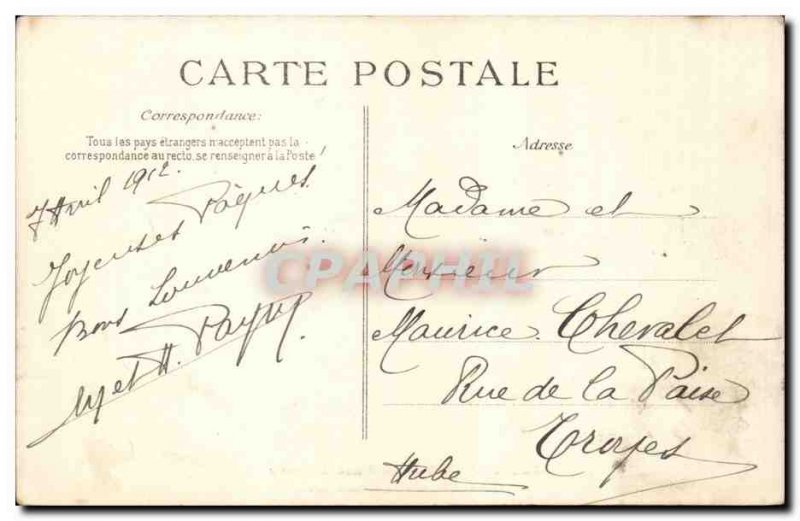 CARTE POSTALE
Correspondance:
Tous les pays étrangers n'acceptent pas la
correspondance au recto, se renseigner à la Poste
7 Avril 1912.
Joyeuses Pâques!
Bons Souvenirs.
et H.
Adresse
Madame et
Monsieur
Maurice Chevalet
Rue de la Paise
Troyes
Aube
CPAPHIL